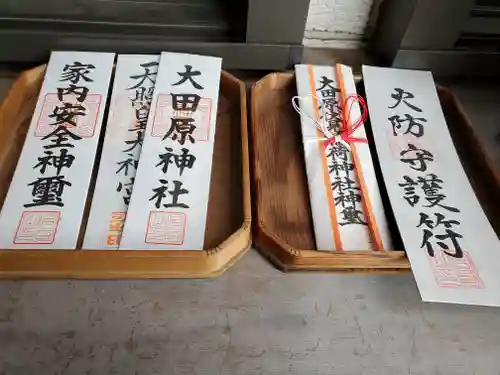 家内安全神璽
天照皇大神宮
大田原神社
大田原 荷神社神璽
火防守護符